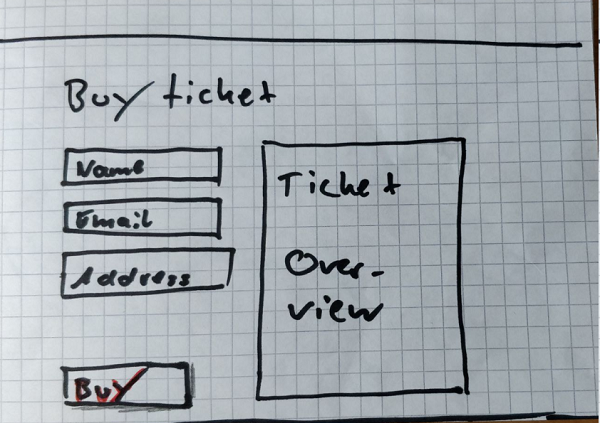 Buy ticket
Name
Email
Address
Buy
Ticket
Over-
view